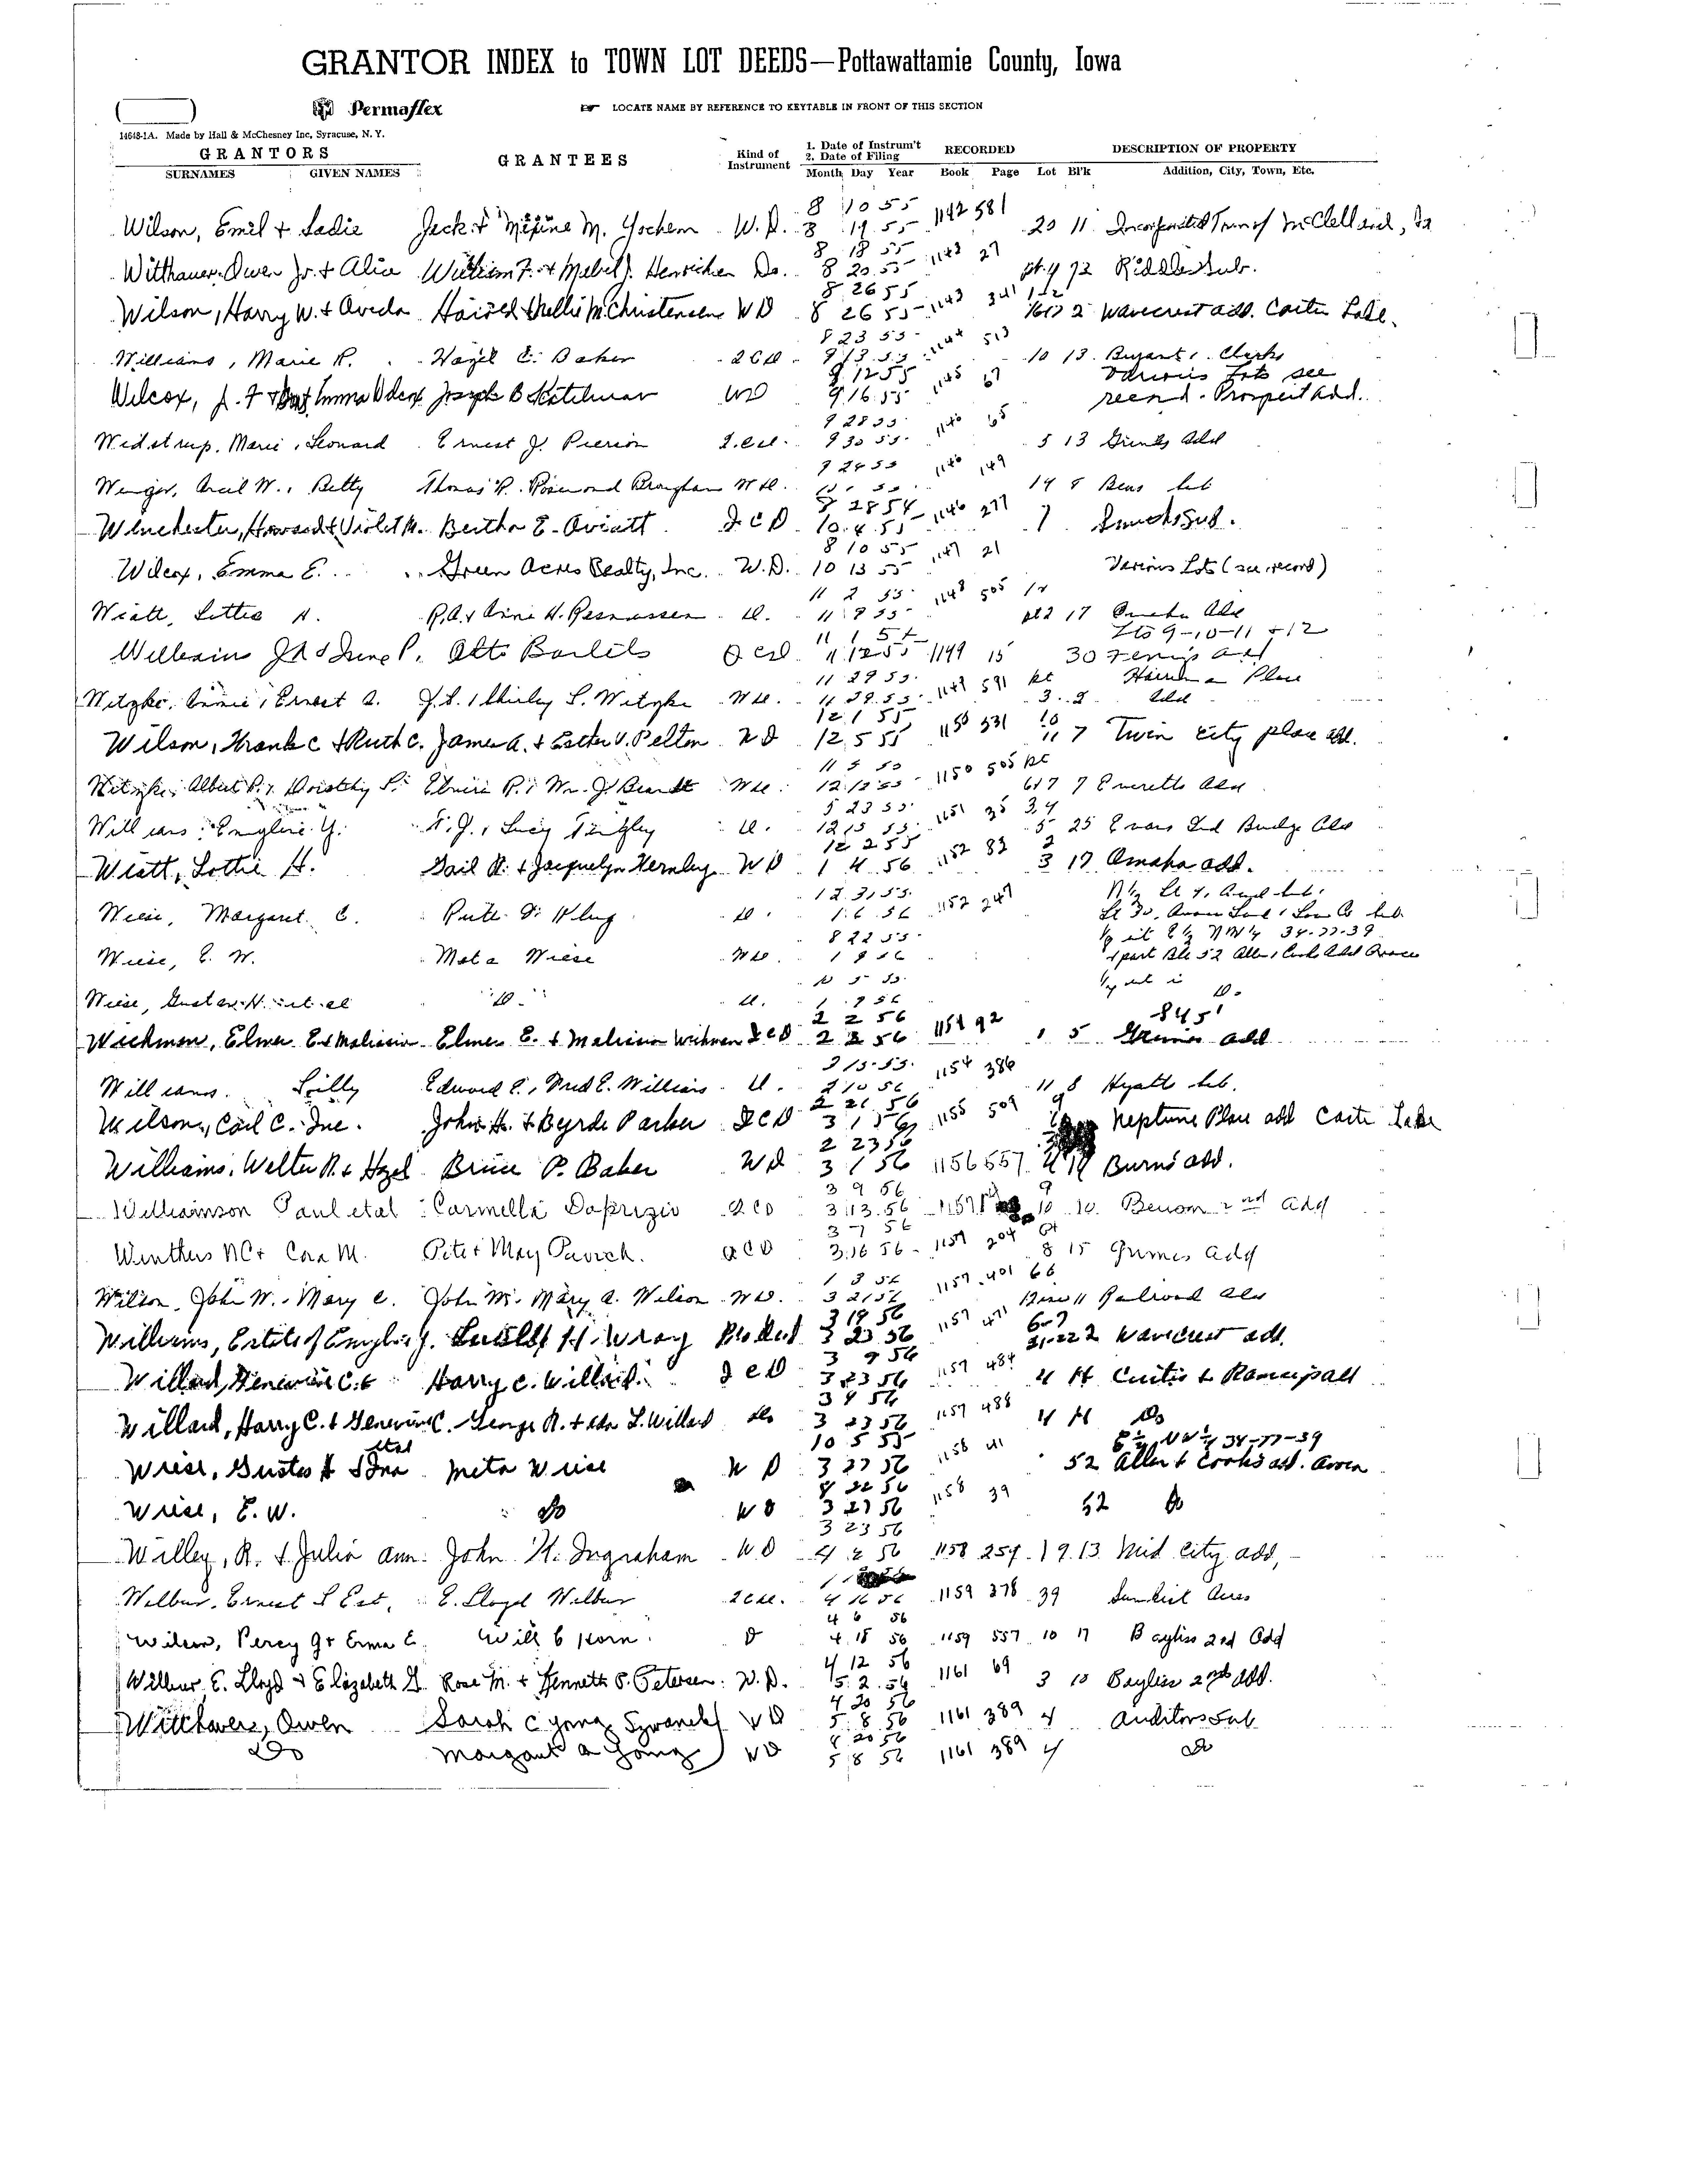 GRANTOR INDEX to TOWN LOT DEEDS—Pottawattamie County, Iowa
Permaflex ☞ LOCATE NAME BY REFERENCE TO KEYTABLE IN FRONT OF THIS SECTION
14648-1A. Made by Hall & McChesney Inc, Syracuse, N. Y.
GRANTORS GRANTEES Kind of Instrument 1. Date of Instrum't 2. Date of Filing RECORDED DESCRIPTION OF PROPERTY
SURNAMES GIVEN NAMES Month Day Year Book Page Lot Bl'k Addition, City, Town, Etc.
8 10 55
Wilson, Emil + Sadie Jack + Maxine M. Yochem W.D. 8 19 55 1142 581 20 11 Incorporated Town of McClelland, Ia
8 18 55
Witthauer, Owen Jr. + Alice William F. + Mabel J. Henrichsen Do. 8 20 55 1143 27 pt. 4 72 Riddles Sub.
8 26 55
Wilson, Harry W. + Aveda Harold + Nellie M. Christensen WD 8 26 55 1143 341 1-2 16 17 2 Wavecrest add. Carter Lake.
8 23 55
Williams, Marie R. Hazel E. Baker QCD 9 13 55 1144 513 10 13 Bryant & Clarks
9 12 55 Various Lots see
Wilcox, J. F. Joseph B Katelman WD 9 16 55 1145 67 record - Prospect Add.
9 28 55
Widstrup, Marie, Leonard Ernest J. Pierson Q.C.D. 9 30 55 1146 65 5 13 Grimes Add
9 24 55
Wenger, W., Betty Thomas R. Rosemond Brougham WD. 1146 149 14 8 Bens Sub
8 28 54
Winchester, Howard + Violet M. Bertha E. Aviatt QCD 10 4 55 1146 277 7 Sub.
8 10 55
Wilcox, Emma E. Green Acres Realty, Inc. W.D. 10 13 55 1147 21 Various Lots (see record)
11 2 55
Wiatt, Lottie H. R.A. + Anna H. Rasmussen D. 11 9 55 1148 505 pt 2 17 Omaha Add
11 1 55 Lts 9-10-11 + 12
Williams JA + June P. Otto Bartels QCD 11 12 55 1149 15 30 Ferrys Add
11 29 55 Place
Witzke, Annie, Ernest A. J.L. & Shirley L. Witzke WD. 11 29 55 1149 591 pt 3 8 Add
12 1 55
Wilson, Frank C + Ruth C. James A. + Esther V. Pelton WD 12 5 55 1150 531 10 11 7 Twin City place add.
Witzke, Albert P. & Dorothy P. Elmira P. & Wm. J. Brandt WD. 12 12 55 1150 505 pt 6 17 7 Everetts Add
5 23 55
Williams, Emylie Y. F. J. & Lucy Tingley D. 12 15 55 1151 35 3,4 5 25 Evans 2nd Bridge Add
12 2 55
Wiatt, Lottie H. Gail R. + Jacquelyn Kernley WD 1 4 56 1152 82 2 3 17 Omaha add.
12 31 55
Wiese, Margaret C. Ruth D. Klug D. 1 6 56 1152 247
8 22 55 E½ NW¼ 34-77-39
Wiese, E. W. Meta Wiese WD. 1 9 56 + part Blk 52 Allen & Cooks Add Avoca
10 5 55
Wiese, Gustav H. et al D. D. 1 9 56 D.
2 2 56
Wichman, Elmer E + Malissia Elmer E. + Malissia Wichman QCD 2 2 56 1154 92 1 5 Grimes add
Williams, Lilly Edward E., Fred E. Williams D. 2 10 56 1154 386 11 8 Hyatts Sub.
2 21 56
Wilson, Carl C. Inc. John H. + Byrde Parker QCD 3 1 56 1155 509 Neptune Place add Carter Lake
2 23 56
Williams, Walter R. + Hazel Bruce P. Baker WD 3 1 56 1156 557 4 14 Burns add.
3 9 56
Williamson Paul etal Carmella Daprizio QCD 3 13 56 1157 9 10 10 Benson 2nd Add
3 7 56
Winthers NC + Cora M. Pete + May Pavich QCD 3 16 56 1157 204 pt 8 15 Grimes Add
1 3 56
Wilson, John W. Mary C. John M. Mary A. Wilson WD. 3 21 56 1157 401 11 Railroad Add
3 19 56 6-7
Williams, Estate of Emylie Y. H. Wray Pro Deed 3 23 56 1157 471 21-22 2 Wavecrest add.
3 9 56
Willard, Genevieve C. Harry C. Willard QCD 3 23 56 1157 484 4 H Curtis + Ramseys add
3 9 56
Willard, Harry C. + Genevieve C. George R. + Ida L. Willard do 3 23 56 1157 488 4 H Do
etal 10 5 55 E½ NW¼ 34-77-39
Wiese, Gustav H + Ina Meta Wiese WD 3 27 56 1158 41 52 Allen + Cooks add. Avoca
8 22 56
Wiese, E. W. Do WD 3 27 56 1158 39 52 Do
3 23 56
Willey, R. + Julia Ann John H. Ingraham WD 4 2 56 1158 259 19 13 Mid City add,
Wilbur, Ernest S Est, E. Lloyd Wilbur QCD. 4 16 56 1159 378 39 Sunkist Acres
4 6 56
Wilson, Percy G + Erma E. Will C Korn D 4 18 56 1159 557 10 17 Bayliss 2nd Add
4 12 56
Wilbur, E. Lloyd + Elizabeth G. Rose M. + Kenneth P. Petersen W.D. 5 2 56 1161 69 3 10 Bayliss 2nd add.
4 20 56
Witthauer, Owen Sarah C Yong WD 5 8 56 1161 389 4 Auditors Sub
4 20 56
Do Margaret A Yong WD 5 8 56 1161 389 4 Do